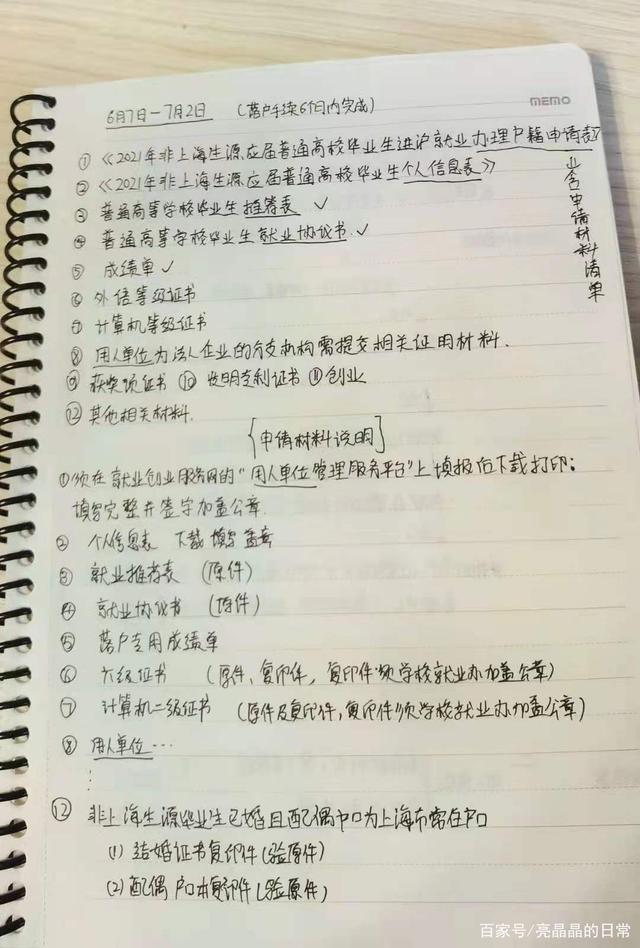 MEMO
6月7日-7月2日 (落户手续6个月内完成)
①《2021年非上海生源应届普通高校毕业生进沪就业办理户籍申请表》
②《2021年非上海生源应届普通高校毕业生个人信息表》
③ 普通高等学校毕业生推荐表 ✓
④ 普通高等学校毕业生就业协议书 ✓
⑤ 成绩单 ✓
⑥ 外语等级证书
⑦ 计算机等级证书
⑧ 用人单位为法人企业的分支机构需提交相关证明材料.
⑨ 获奖项证书 ⑩ 发明专利证书 ⑪ 创业
⑫ 其他相关材料.
含申请材料清单
[申请材料说明]
① 须在就业创业服务网的“用人单位管理服务平台”上填报后下载打印;
填写完整并签字加盖公章.
② 个人信息表 下载 填写 盖章
③ 就业推荐表 (原件)
④ 就业协议书 (原件)
⑤ 落户专用成绩单
⑥ 六级证书 (原件、复印件, 复印件须学校就业办加盖公章)
⑦ 计算机二级证书 (原件及复印件,复印件须学校就业办加盖公章)
⑧ 用人单位…
⋮
⑫ 非上海生源毕业生已婚且配偶户口为上海市常住户口
(1) 结婚证书复印件(验原件)
(2) 配偶户口本复印件(验原件)
百家号/亮晶晶的日常